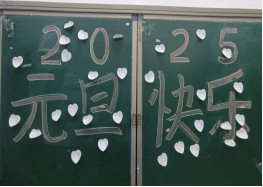 2025
元旦快乐